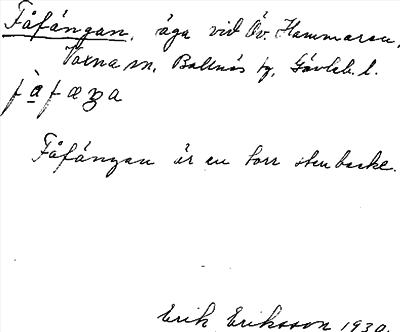 Fåfängan, äga vid Öv. Hammaren,
Voxna sn, Bollnäs tg, Gävleb. l.
Fåfängan är en torr stenbacke.
Erik Eriksson 1930.